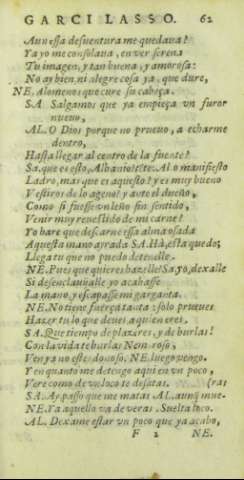 GARCI LASSO. 62
Aun essa desuentura me quedaua?
Ya yo me consolaua, en ver serena
Tu imagen, y tan buena, y amorosa:
No ay bien, ni alegre cosa ya, que dure,
NE. Alomenos que cure su cabeça.
SA Salgamos que ya empieça vn furor
nueuo,
AL. O Dios porque no prueuo, a echarme
dentro,
Hasta llegar al centro de la fuente?
Sa. que es esto, Albanio tẽte. Al o manifiesto
Ladro, mas que es aquesto? y es muy bueno
Vestiros de lo ageno? y ante el dueño,
Como si fuesse vn leño sin sentido,
Venir muy reuestido de mi carne?
Yo hare que descarne essa alma osada
Aquesta mano ayrada SA. Hà, està quedo;
Llega tu que no puedo detenelle.
NE. Pues que quieres hazelle? Sa. yo, dexalle
Si desenclauijalle yo acabasse
La mano, y escapasse mi garganta.
NE. No tiene fuerça tanta: solo prueues
Hazer tu lo que deues a quien eres,
SA. Que tiempo de plazeres, y de burlas!
Con la vida te burlas Nemoroso,
Ven ya no estes donoso, NE. luego vengo.
Y en quanto me detengo aqui en vn poco,
Vere como de vn loco te desatas. (ras
SA. Ay, passo que me matas AL. aunq mue-
NE. Ya aquello va de veras. Suelta loco.
AL. Dexame estar vn poco que ya acabo,
F 2 NE.